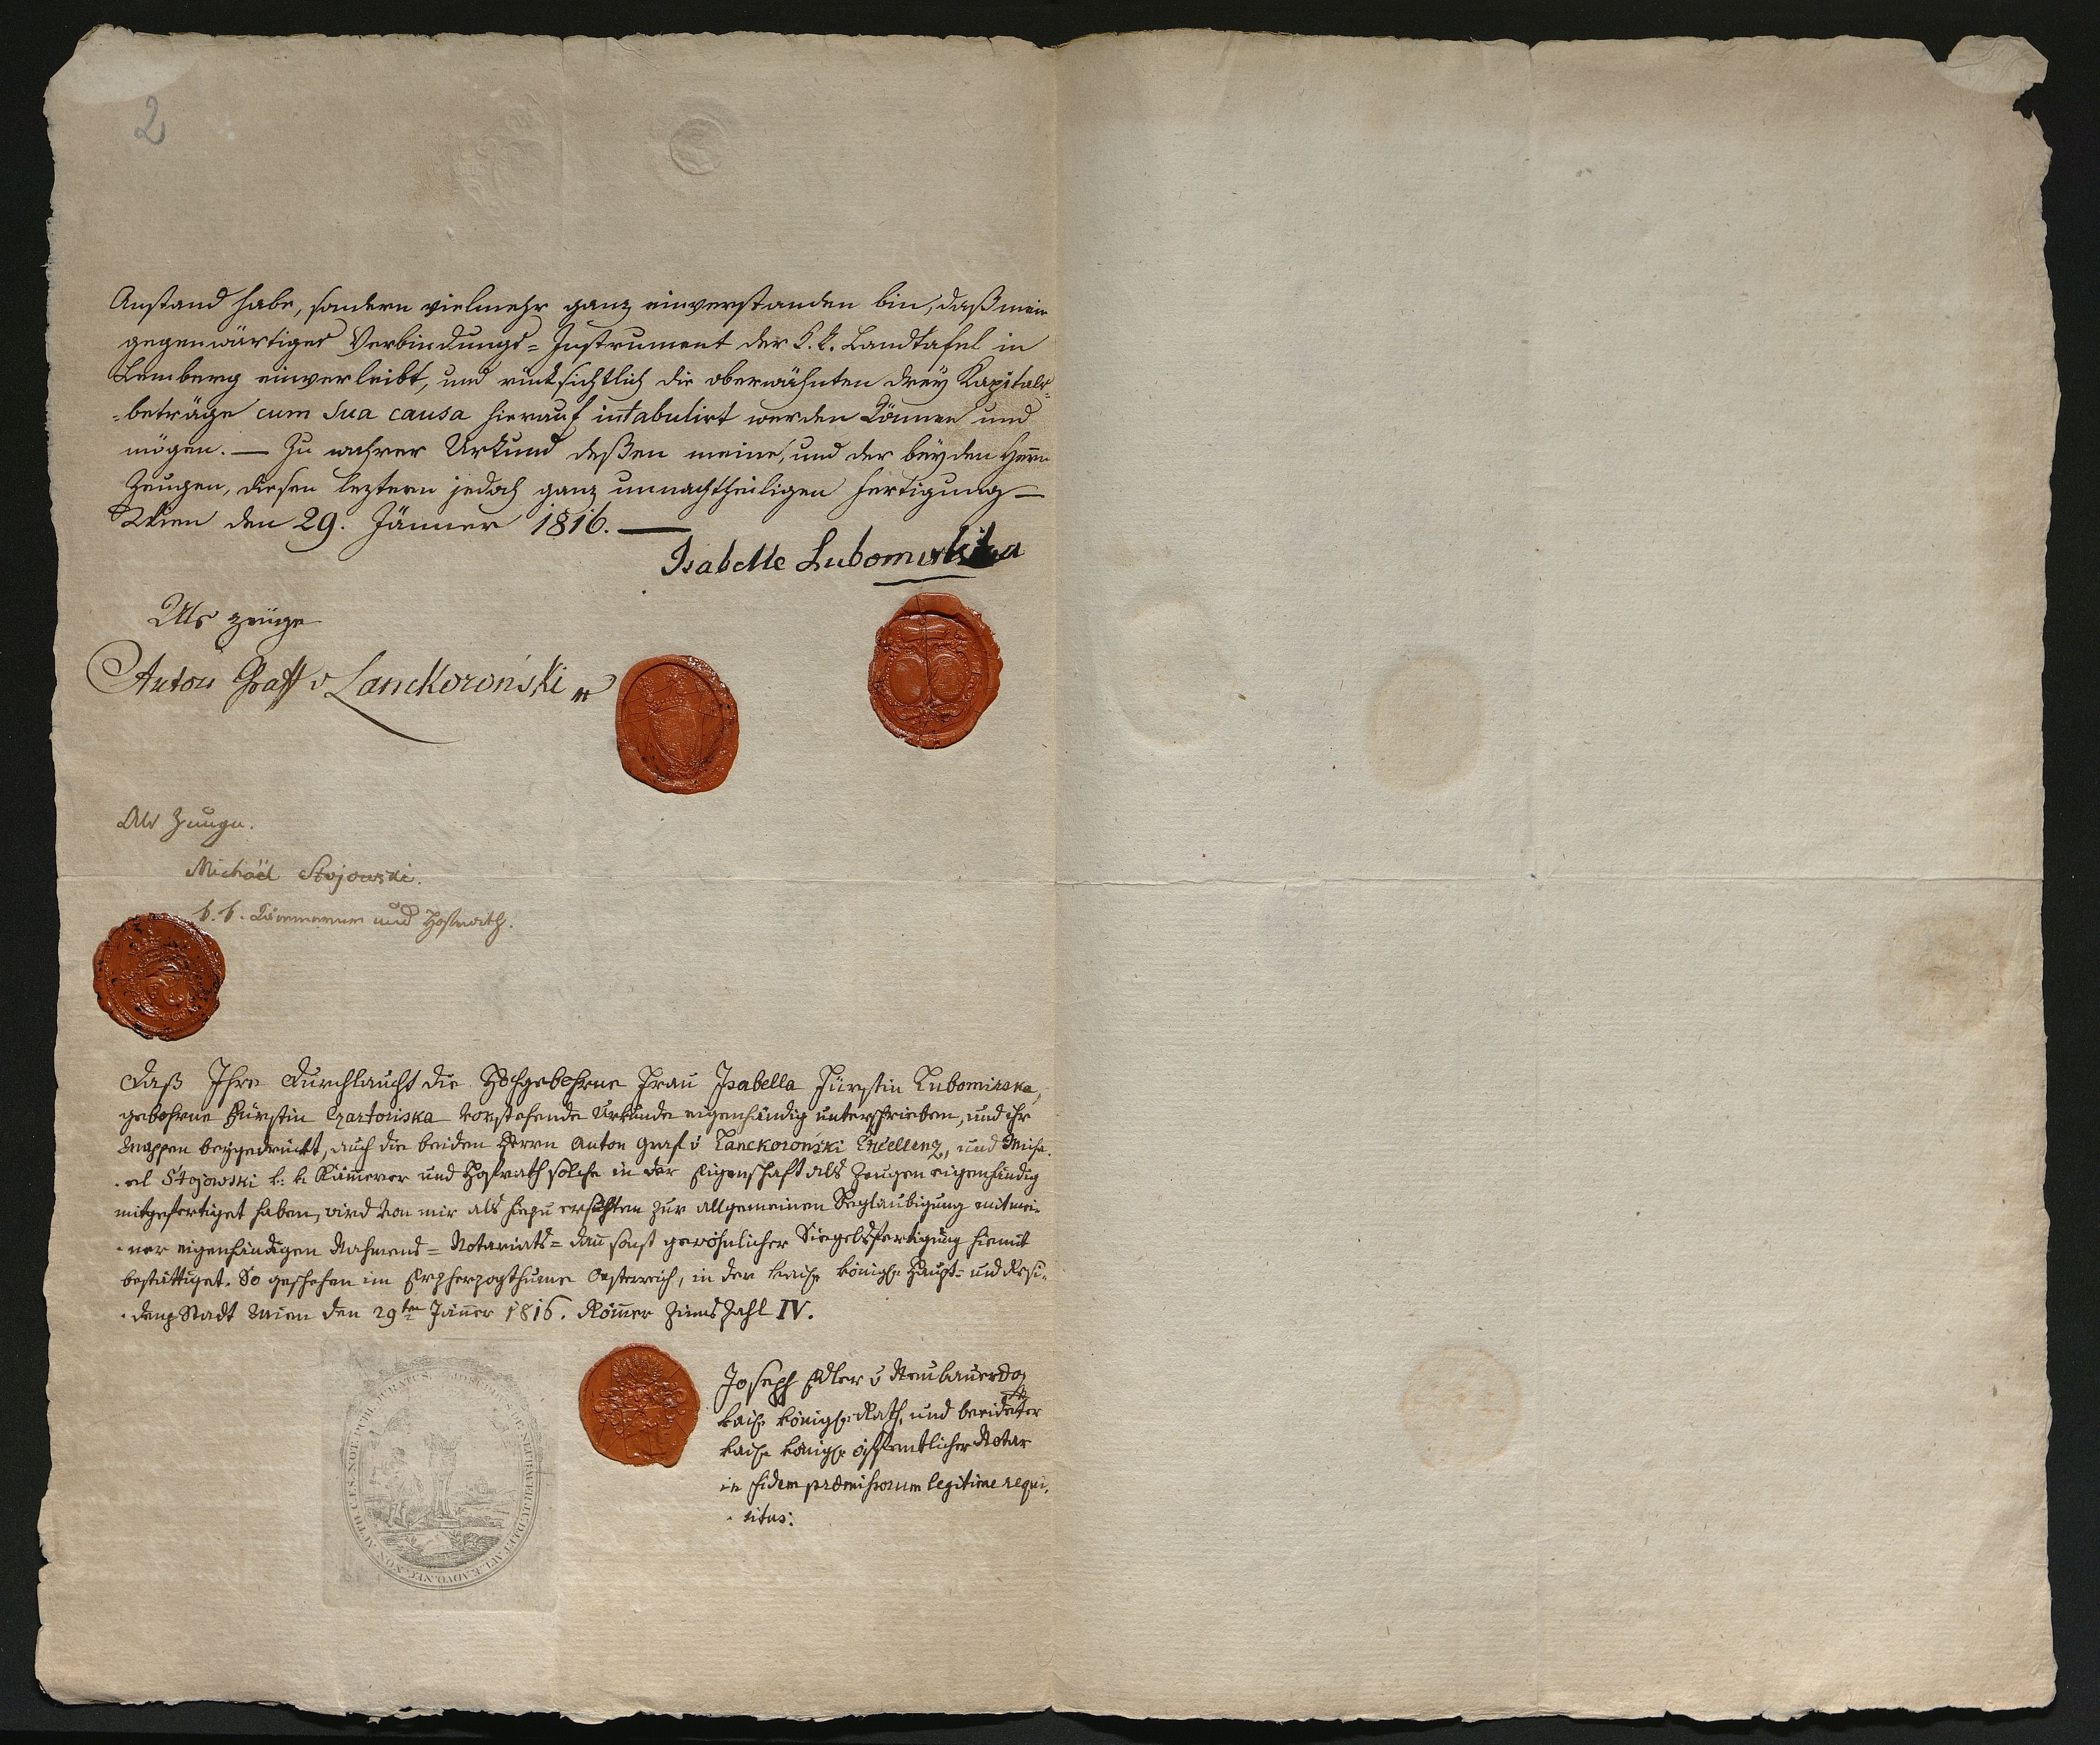 2
Anstand habe, sondern vielmehr ganz einverstanden bin, daß mein
gegenwärtiges Verbindungs= Instrument der k. k. Landtafel in
Lemberg einverleibt, und rücksichtlich die oberwähnten drey Kapitals=
=beträge cum sua causa hierauf intabulirt werden können und
mögen. — Zu wahrer Urkund deßen meine, und der beyden Herrn
Zeugen, diesen leztern jedoch ganz unnachtheiligen Fertigung —
Wien den 29. Jänner 1816. —
Isabelle Lubomirska
Als Zeuge
Anton Graff v Lanckoroński
Als Zeuge.
Michäel Stojowski.
k. k. Kämmerer und Hofrath.
Daß Ihre Durchlaucht die Hochgebohrne Frau Isabella Fürstin Lubomirska,
gebohrne Fürstin Czartoriska vorstehende Urkunde eigenhändig unterschrieben, und ihr
Wappen beygedrückt, auch die beiden Herrn Anton Graf v Lanckoroński Excellenz, und Micha=
=el Stojowski k: k Kämerer und Hofrath solche in der Eigenschaft als Zeugen eigenhändig
mitgefertiget haben, wird von mir als hiezu ersuchten zur allgemeinen Beglaubigung mit mei=
=ner eigenhändigen Nahmens= Notariats= dann sonst gewöhnlicher Siegelsfertigung hiemit
bestättiget. So geschehen im Erzherzogthume Oesterreich, in der kais königl Haupt= und Resi=
=denz Stadt Wien den 29ten Jäner 1816. Römer Zinns Zahl IV.
Joseph Edler v Neubauer
kais königl Rath, und beeideter
kais königl öffentlicher Notar
in fidem præmissorum legitime requi=
=situs:
NOT. PUBL. JURATUS.